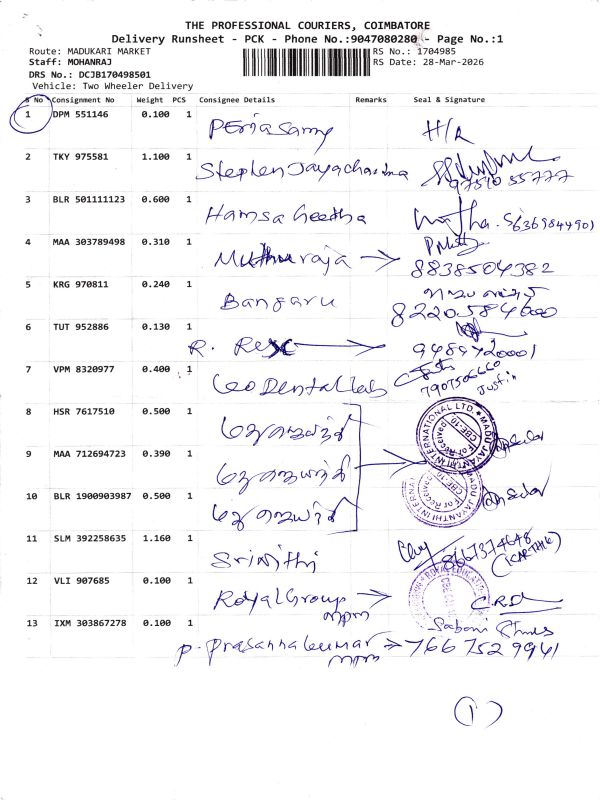 THE PROFESSIONAL COURIERS, COIMBATORE
Delivery Runsheet - PCK - Phone No.:9047080280 - Page No.:1
Route: MADUKARI MARKET RS No.: 1704985
Staff: MOHANRAJ RS Date: 28-Mar-2026
DRS No.: DCJB170498501
Vehicle: Two Wheeler Delivery
S No Consignment No Weight PCS Consignee Details Remarks Seal & Signature
1 DPM 551146 0.100 1 Periasamy H/R
2 TKY 975581 1.100 1 Stephen Jayachandra
9751035777
3 BLR 501111123 0.600 1 Hamsa Geetha 6369844901
4 MAA 303789498 0.310 1 Muthuraja → 8838504382
5 KRG 970811 0.240 1 Bangaru 8220584000
6 TUT 952886 0.130 1 R. Rex → 9489420001
7 VPM 8320977 0.400 1 Geo Dental Lab 7907506660
Justin
8 HSR 7617510 0.500 1 மதுஜெயந்தி
MADU JAYANTHI INTERNATIONAL LTD. For Received CBE-10
9 MAA 712694723 0.390 1 மதுஜெயந்தி
MADU JAYANTHI INTERNATIONAL For Received CBE-10
10 BLR 1900903987 0.500 1 மதுஜெயந்தி
11 SLM 392258635 1.160 1 Srinithi 8667374648
(KARTHIK)
12 VLI 907685 0.100 1 Royal Group → C.R.D
mpm
13 IXM 303867278 0.100 1 P. Prasannakumar → 7667529941
mpm
1